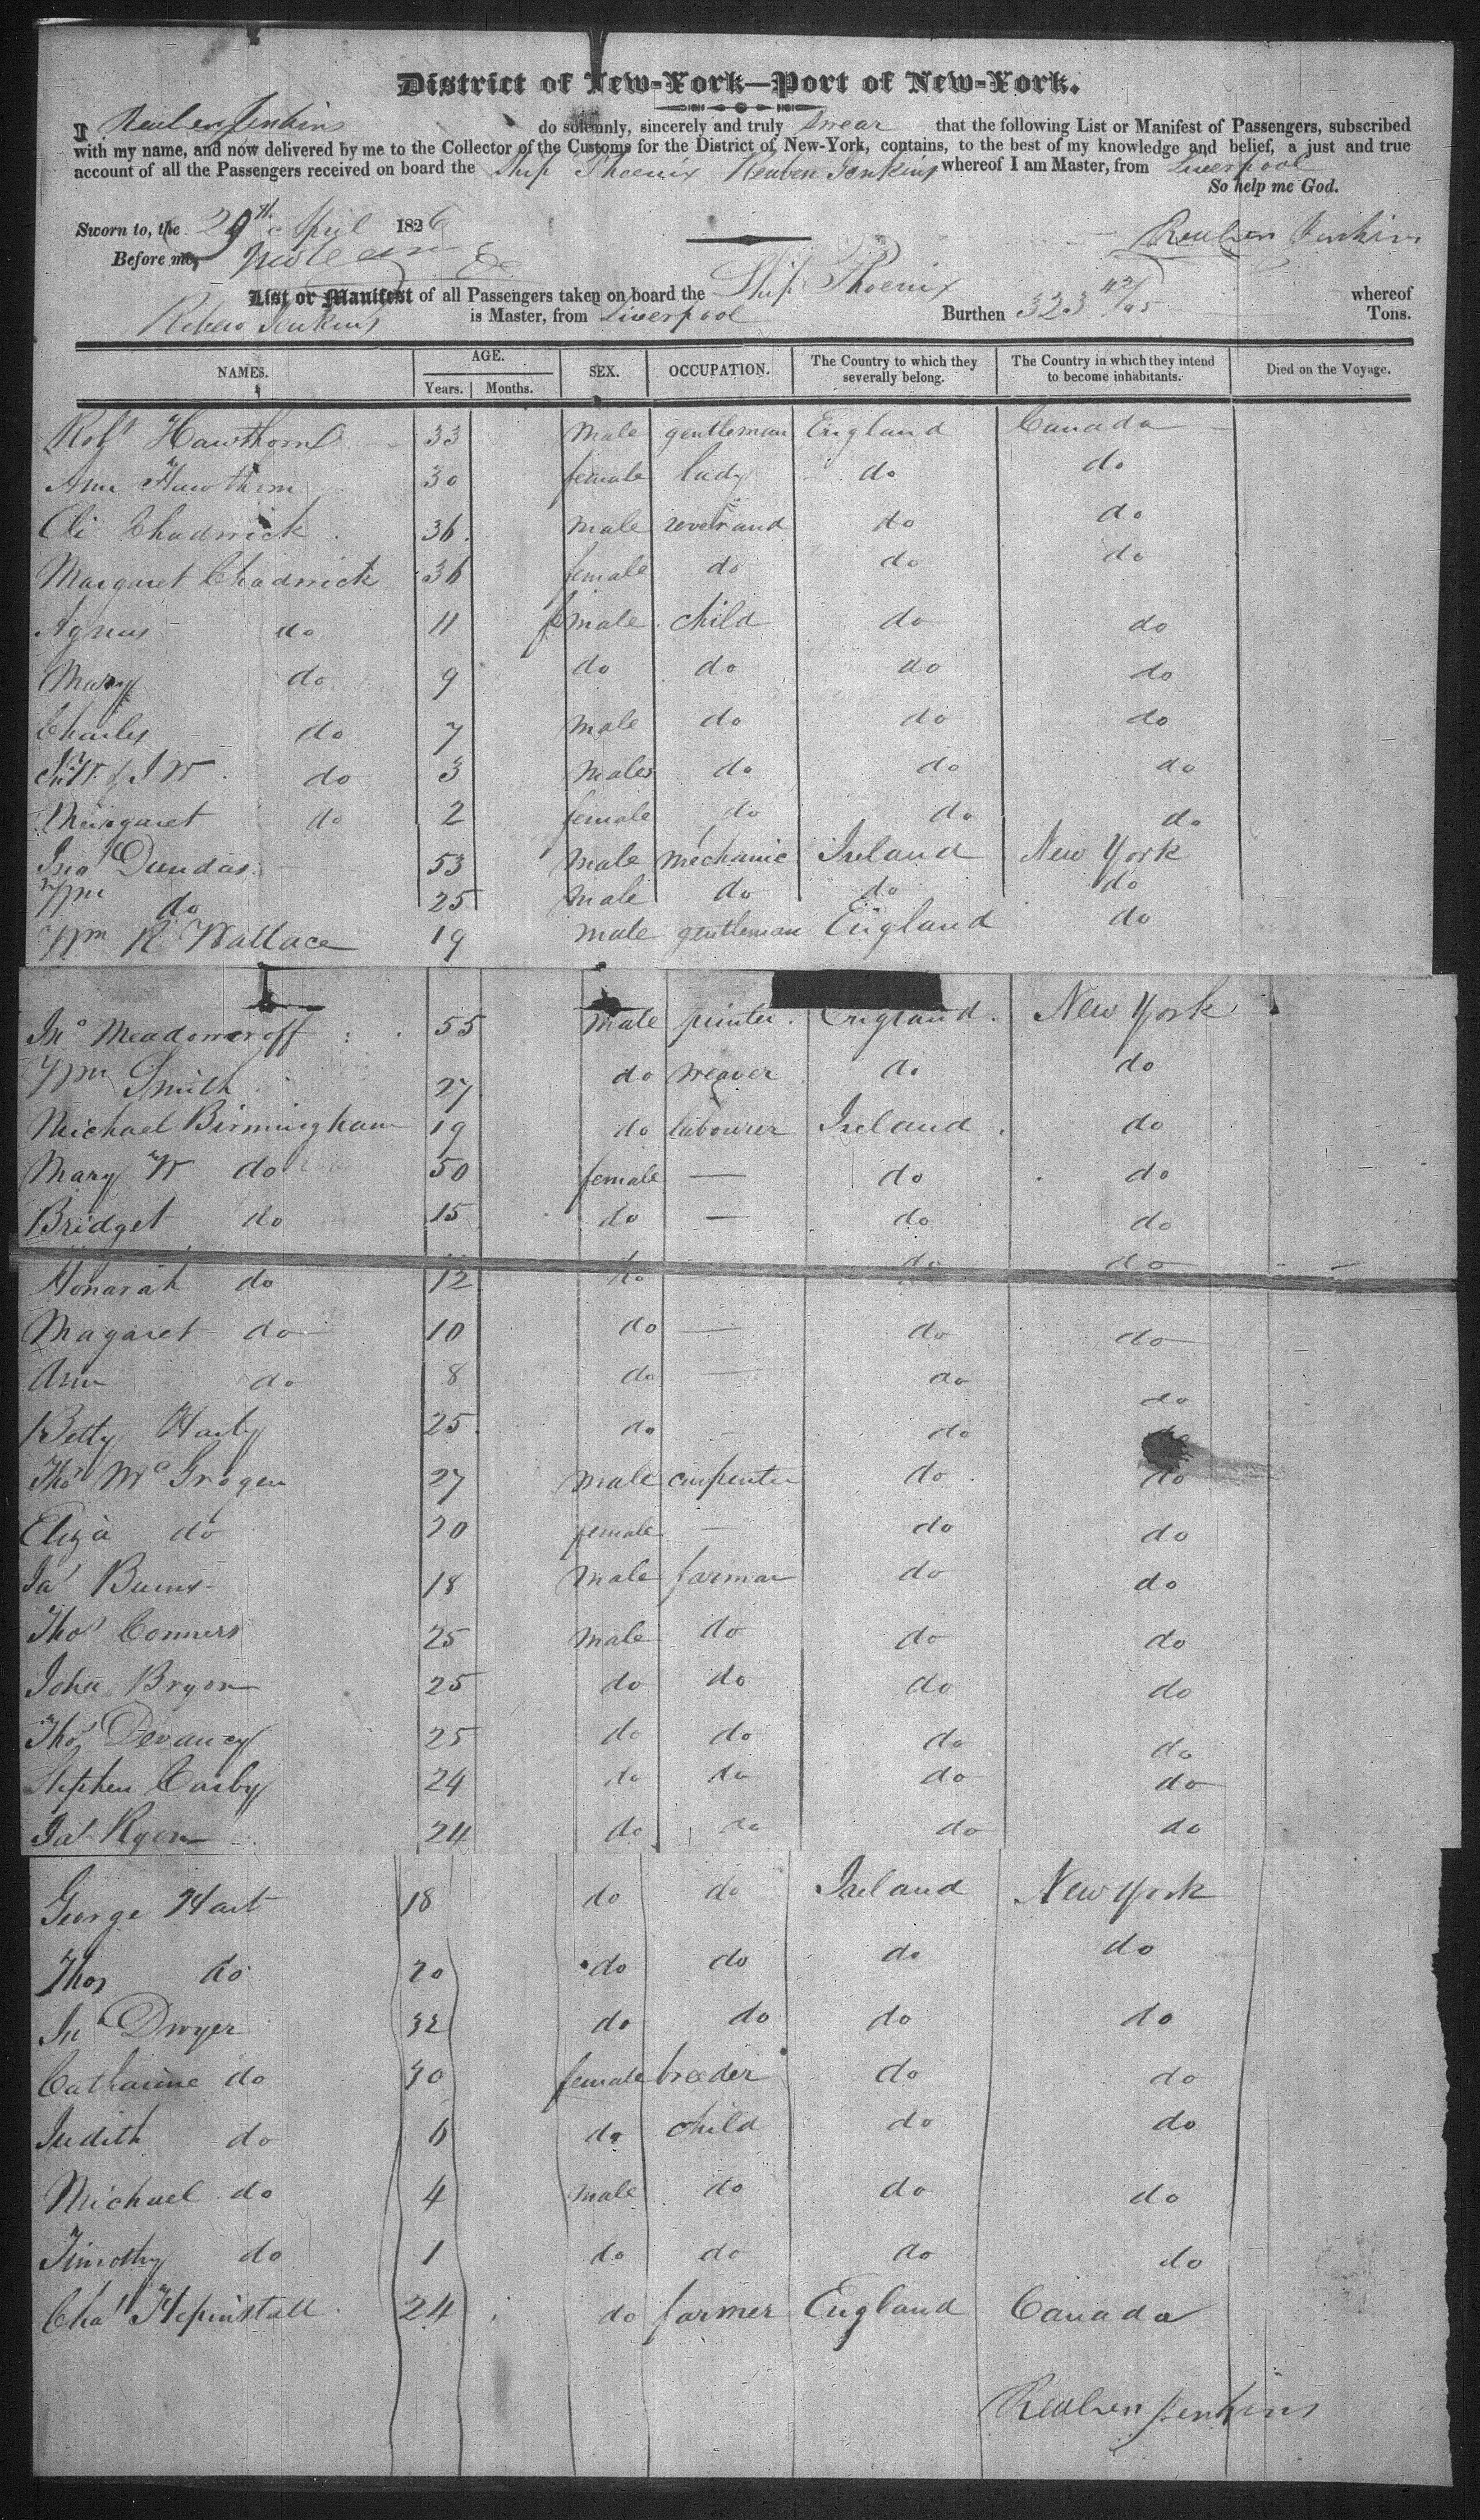 District of New-York—Port of New-York.
I Reuben Jenkins do solemnly, sincerely and truly swear that the following List or Manifest of Passengers, subscribed
with my name, and now delivered by me to the Collector of the Customs for the District of New-York, contains, to the best of my knowledge and belief, a just and true
account of all the Passengers received on board the Ship Phoenix Reuben Jenkins whereof I am Master, from Liverpool
So help me God.
Sworn to, the 29th April 1826 Reuben Jenkins
Before me,
List or Manifest of all Passengers taken on board the Ship Phoenix whereof
Jenkins is Master, from Liverpool Burthen 323 42/95 Tons.
NAMES. AGE. Years. Months. SEX. OCCUPATION. The Country to which they severally belong. The Country in which they intend to become inhabitants. Died on the Voyage.
Robt Hawthorn 33 male gentleman England Canada
Ann Hawthorn 30 female lady do do
Eli Chadwick 36 male reverand do do
Margaret Chadwick 36 female do do do
Agnus do 11 female child do do
Mary do 9 do do do do
Charles do 7 male do do do
J W do 3 males do do do
Margaret do 2 female do do do
Jno Dundas 53 male mechanic Ireland New York
Wm do 25 male do do do
Wm R Wallace 19 male gentleman England do
Jno Meadowcroff 55 male printer England New York
Wm Smith 27 do weaver do do
Michael Birmingham 19 do labourer Ireland do
Mary W do 50 female — do do
Bridget do 15 do — do do
Honarah do 12 do do do
Magaret do 10 do — do do
Ann do 8 do — do do
Betty Harty 25 do — do do
Thos Mc Grogen 27 male carpenter do do
Eliza do 20 female — do do
Jas Burns 18 male farmar do do
Thos Conners 25 male do do do
John Bryon 25 do do do do
Thos Devancy 25 do do do do
Stephen Casby 24 do do do do
Jas Ryon 24 do do do do
George Hart 18 do do Ireland New York
Thos do 20 do do do do
Jn Dwyer 32 do do do do
Catharine do 30 female breeder do do
Judith do 6 do child do do
Michael do 4 male do do do
Timothy do 1 do do do do
Chas Hepinstall 24 do farmer England Canada
Reuben Jenkins